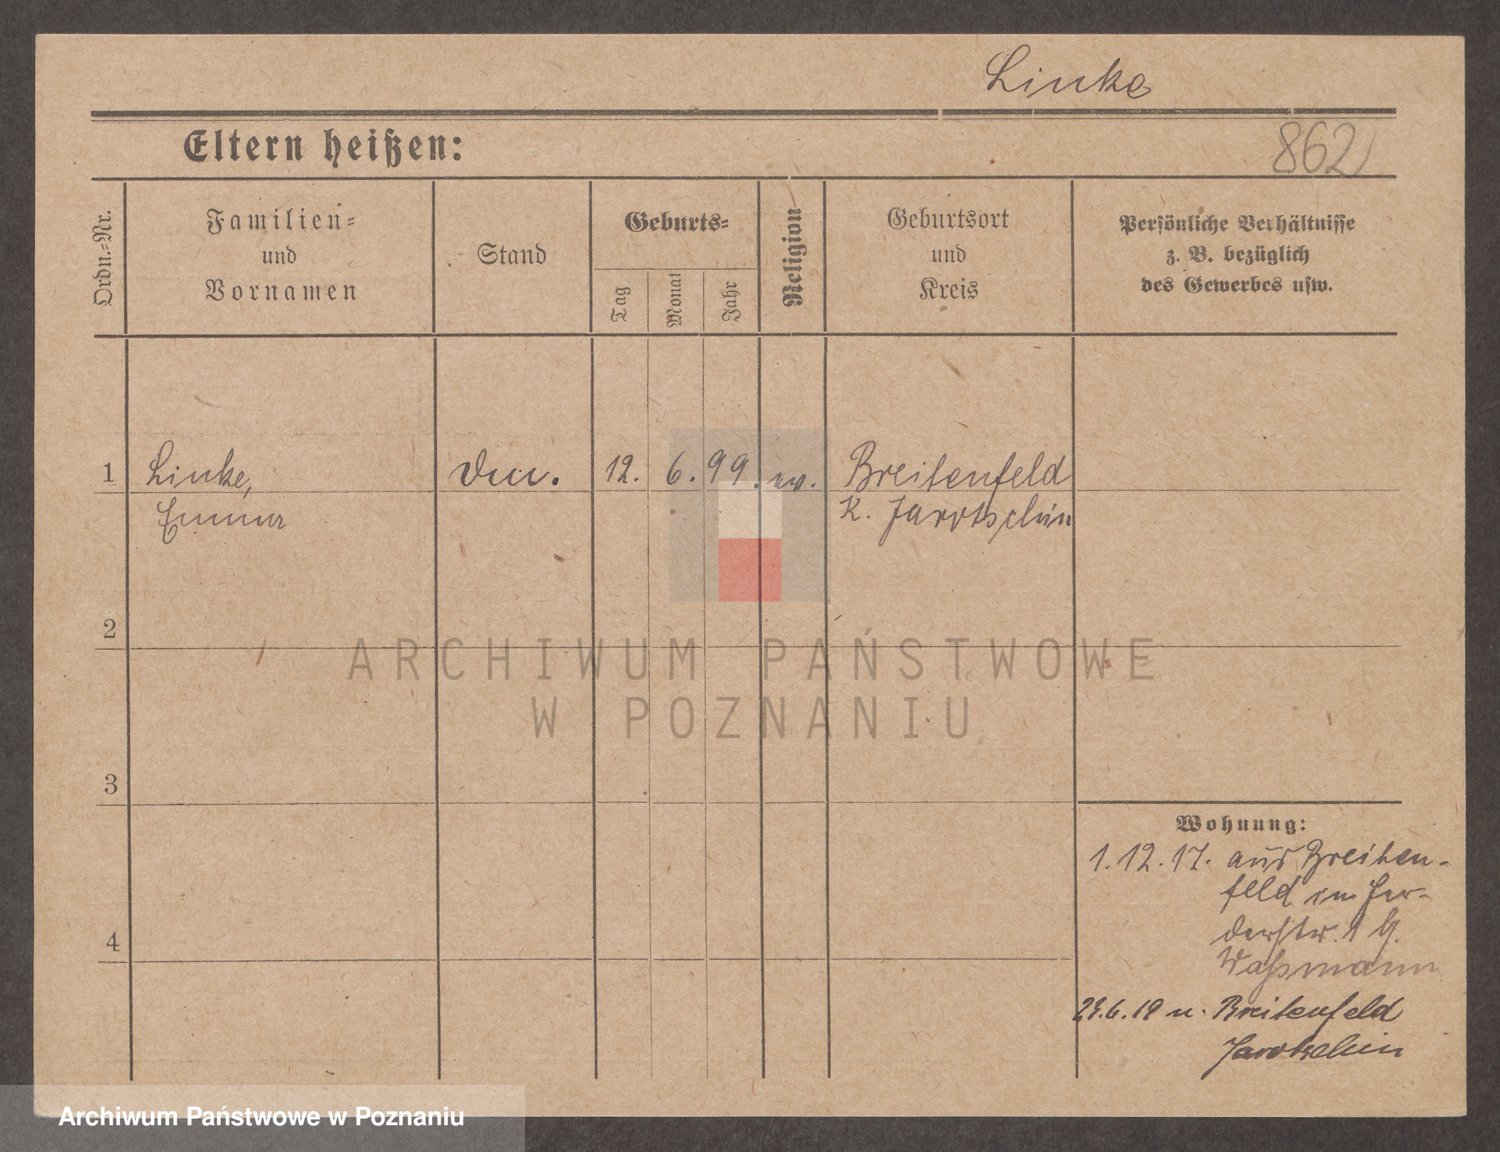 Linke
Eltern heißen:
862
Ordn.-Nr.
Familien-
und
Vornamen
Stand
Geburts-
Tag
Monat
Jahr
Religion
Geburtsort
und
Kreis
Persönliche Verhältnisse
z. B. bezüglich
des Gewerbes usw.
1
Linke,
Emma
12. 6. 99. ev.
Breitenfeld
K. Jarotschin
2
ARCHIWUM PAŃSTWOWE
W POZNANIU
3
Wohnung:
1.12.17. aus Breiten-
feld in
4
derstr. 1 b.
Waßmann
23.6.19 n. Breitenfeld
Jarotschin
Archiwum Państwowe w Poznaniu